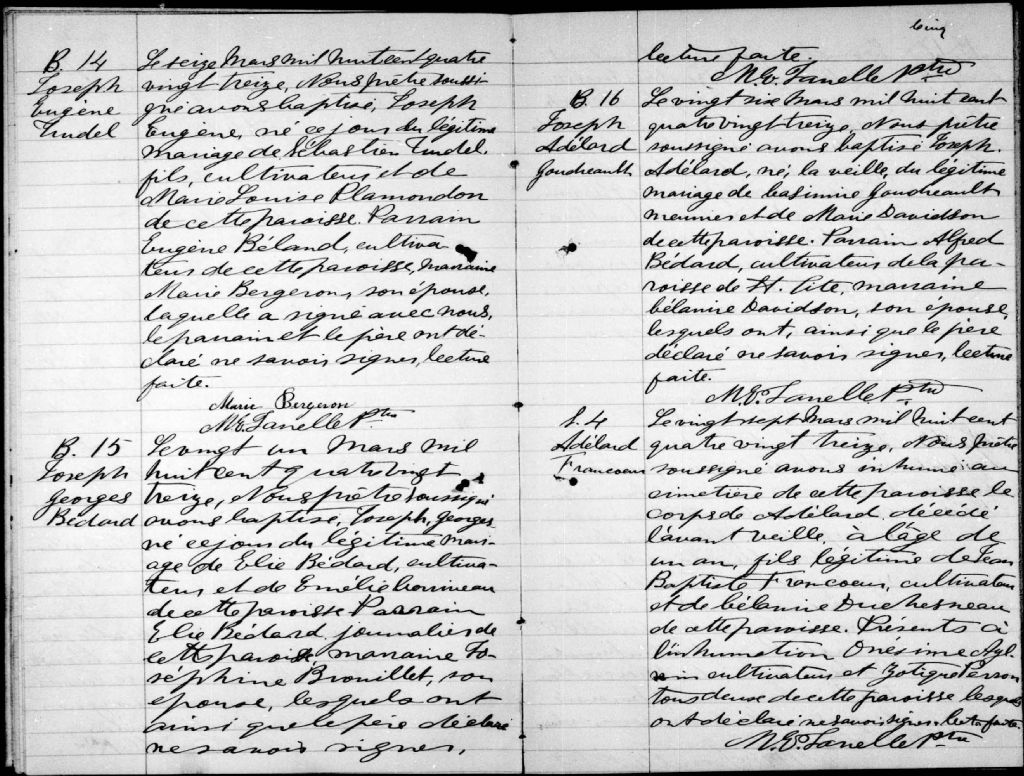 B. 14
Joseph
Eugène
Trudel
Le seize Mars mil huit cent quatre
vingt treize, Nous prêtre soussi-
gné avons baptisé, Joseph
Eugène, né ce jour du légitime
mariage de Sébastien Trudel
fils, cultivateur et de
Marie Louise Plamondon
de cette paroisse. Parrain
Eugène Béland, cultiva-
teur de cette paroisse, marraine
Marie Bergeron, son épouse,
laquelle a signé avec nous,
le parrain et le père ont dé-
claré ne savoir signer, lecture
faite.
Marie Bergeron
Ptre
B. 15
Joseph
Georges
Bédard
Le vingt un Mars mil
huit cent quatre vingt
treize, Nous prêtre soussigné
avons baptisé, Joseph, Georges,
né ce jour du légitime mari-
age de Elie Bédard, cultiva-
teur et de Emélie
de cette paroisse Parrain
Elie Bédard, journalier de
cette paroisse marraine Jo-
séphine Brouillet, son
épouse, lesquels ont
ainsi que le père déclaré
ne savoir signer,
cinq
lecture faite.
Ptre
B. 16
Joseph
Adélard
Goudreault
Le vingt six Mars mil huit cent
quatre vingt treize, Nous prêtre
soussigné avons baptisé Joseph.
Adélard, né, la veille, du légitime
mariage de Casimire Goudreault
meunier et de Marie Davidson
de cette paroisse. Parrain Alfred
Bédard, cultivateur de la pa-
roisse de St. Tite, marraine
Célanire Davidson, son épouse,
lesquels ont, ainsi que le père
déclaré ne savoir signer, lecture
faite.
Ptre
S. 4
Adélard
Francoeur
Le vingt sept Mars mil huit cent
quatre vingt treize, Nous prêtre
soussigné avons inhumé au
cimetière de cette paroisse le
corps de Adélard, décédé
l'avant veille, à l'âge de
un an, fils légitime de Jean
Baptiste Francoeur, cultivateur
et de Célanire Duchesneau
de cette paroisse. Présents à
l'inhumation Onésime
cultivateur et Zotique Person
tous deux de cette paroisse lesquels
ont déclaré ne savoir signer. lecture faite.
Ptre